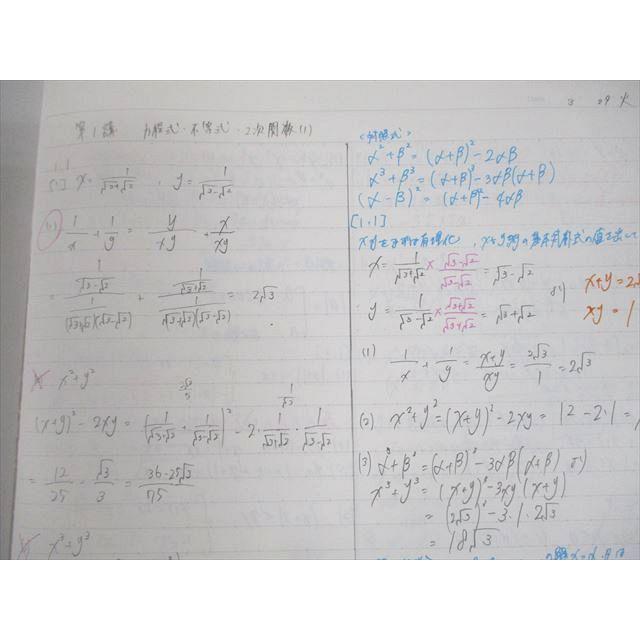 3 29 火
第1講 方程式・不等式・2次関数(1)
1.1
x = 1/(√3+√2) , y = 1/(√3-√2)
(1) 1/x + 1/y = y/xy + x/xy
x²+y²
(x+y)² - 2xy = (1/(√3+√2) + 1/(√3-√2))² - 2・1/(√3+√2)・1/(√3-√2)
= 12/25 - √3/3 = (36-25√3)/75
x³+y³
<対称式>
α²+β² = (α+β)² - 2αβ
α³+β³ = (α+β)³ - 3αβ(α+β)
(α-β)² = (α+β)² - 4αβ
[1.1]
x = 1/(√3+√2) × (√3-√2)/(√3-√2) = √3-√2
y = 1/(√3-√2) × (√3+√2)/(√3+√2) = √3+√2
より
x+y = 2√
xy = 1
(1) 1/x + 1/y = (x+y)/xy = 2√3/1 = 2√3
(2) x²+y² = (x+y)² - 2xy = 12 - 2・1 =
(3) α³+β³ = (α+β)³ - 3αβ(α+β) より
x³+y³ = (x+y)³ - 3xy(x+y)
= (2√3)³ - 3・1・2√3
= 18√3